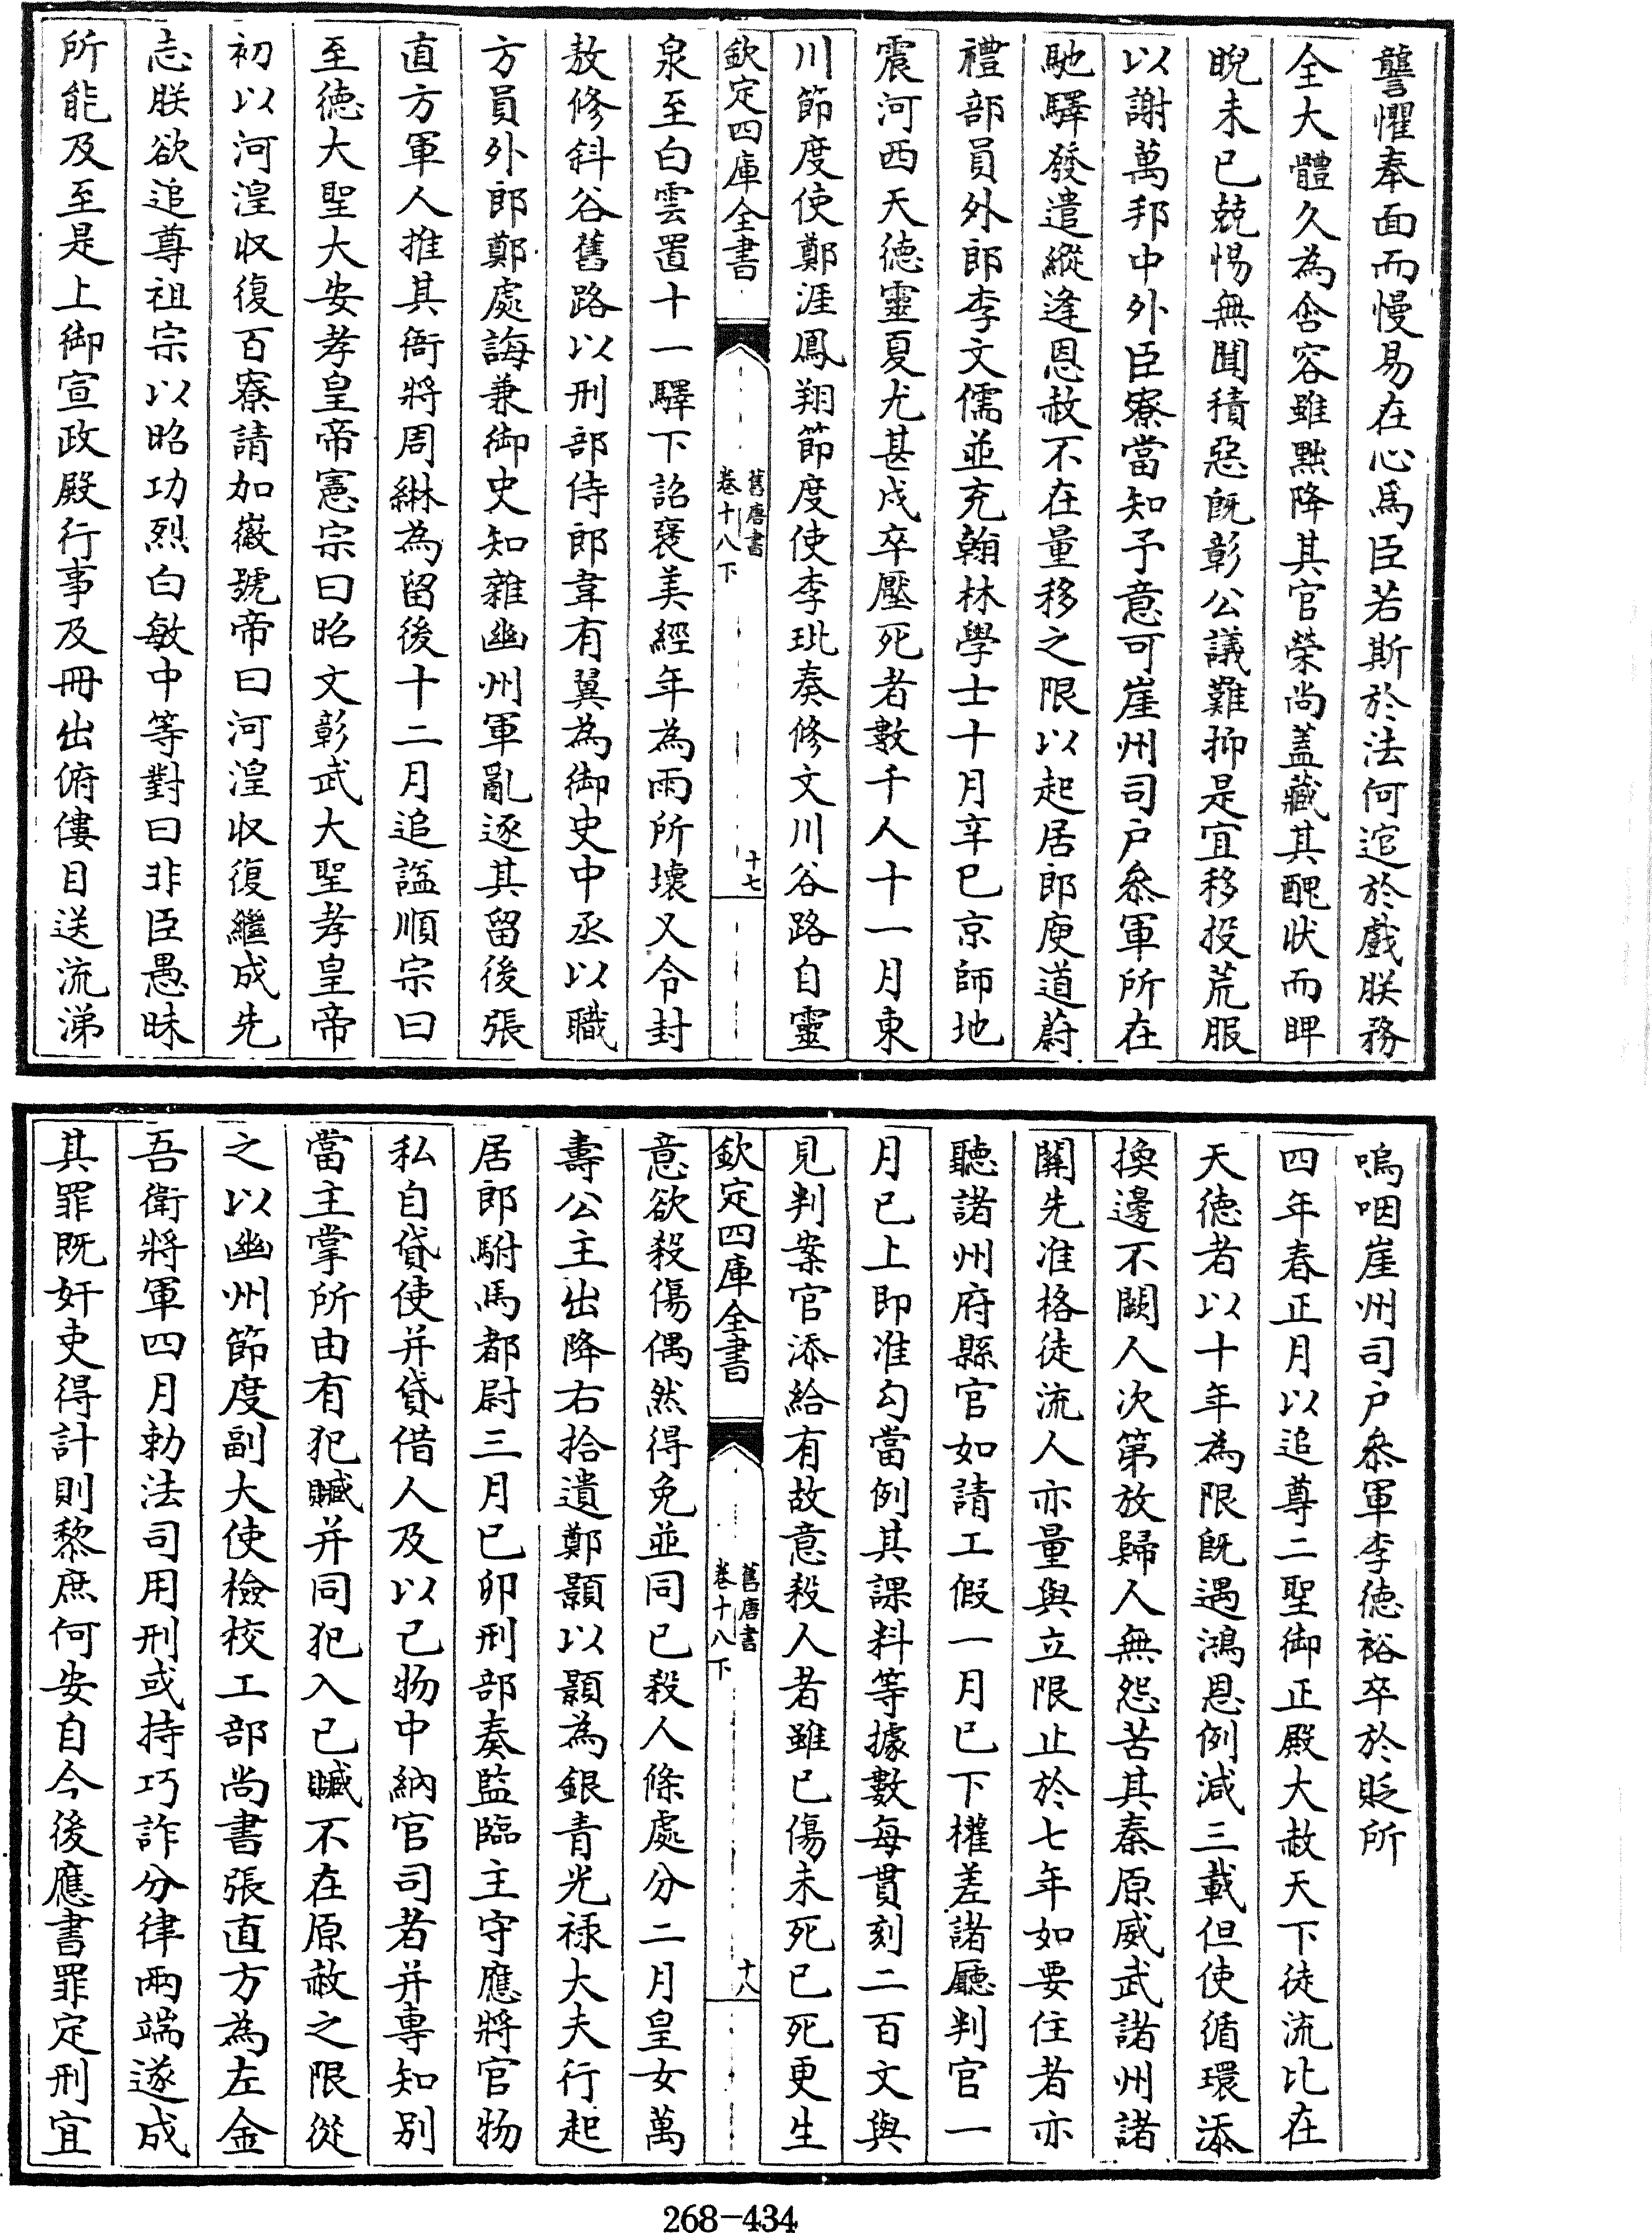 讋懼奉面而慢易在心爲臣若斯於法何逭於戲朕務
全大體久為含容雖黜降其官榮尚蓋藏其醜狀而睥
睨未已兢惕無聞積惡既彰公議難抑是宜移投荒服
以謝萬邦中外臣寮當知予意可崖州司户叅軍所在
馳驛發遣縱逢恩赦不在量移之限以起居郎庾道蔚
禮部員外郎李文儒並充翰林學士十月辛巳京師地
震河西天德靈夏尤甚戍卒壓死者數千人十一月東
川節度使鄭涯鳳翔節度使李玭奏修文川谷路自靈
欽定四庫全書
舊唐書
卷十八下
十七
泉至白雲置十一驛下詔褒美經年為雨所壞又令封
敖修斜谷舊路以刑部侍郎韋有翼為御史中丞以職
方員外郎鄭處誨兼御史知雜幽州軍亂逐其留後張
直方軍人推其衙將周綝為留後十二月追諡順宗曰
至德大聖大安孝皇帝憲宗曰昭文彰武大聖孝皇帝
初以河湟收復百寮請加徽號帝曰河湟收復繼成先
志朕欲追尊祖宗以昭功烈白敏中等對曰非臣愚昧
所能及至是上御宣政殿行事及冊出俯僂目送流涕
嗚咽崖州司户叅軍李德裕卒於貶所
四年春正月以追尊二聖御正殿大赦天下徒流比在
天德者以十年為限既遇鴻恩例減三載但使循環添
換邊不闕人次第放歸人無怨苦其秦原威武諸州諸
關先准格徒流人亦量與立限止於七年如要住者亦
聽諸州府縣官如請工假一月已下權差諸廳判官一
月已上即准勾當例其課料等據數每貫刻二百文與
見判案官添給有故意殺人者雖已傷未死已死更生
欽定四庫全書
舊唐書
卷十八下
十八
意欲殺傷偶然得免並同已殺人條處分二月皇女萬
壽公主出降右拾遺鄭顥以顥為銀青光祿大夫行起
居郎駙馬都尉三月己卯刑部奏監臨主守應將官物
私自貸使并貸借人及以己物中納官司者并專知別
當主掌所由有犯贓并同犯入己贓不在原赦之限從
之以幽州節度副大使檢校工部尚書張直方為左金
吾衛將軍四月勅法司用刑或持巧詐分律兩端遂成
其罪既奸吏得計則黎庶何安自今後應書罪定刑宜
268-434